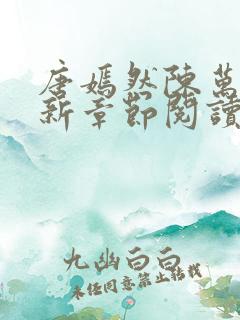 唐嫣然陳萬
新章節閱讀
九幽白白
未经同意禁止转载